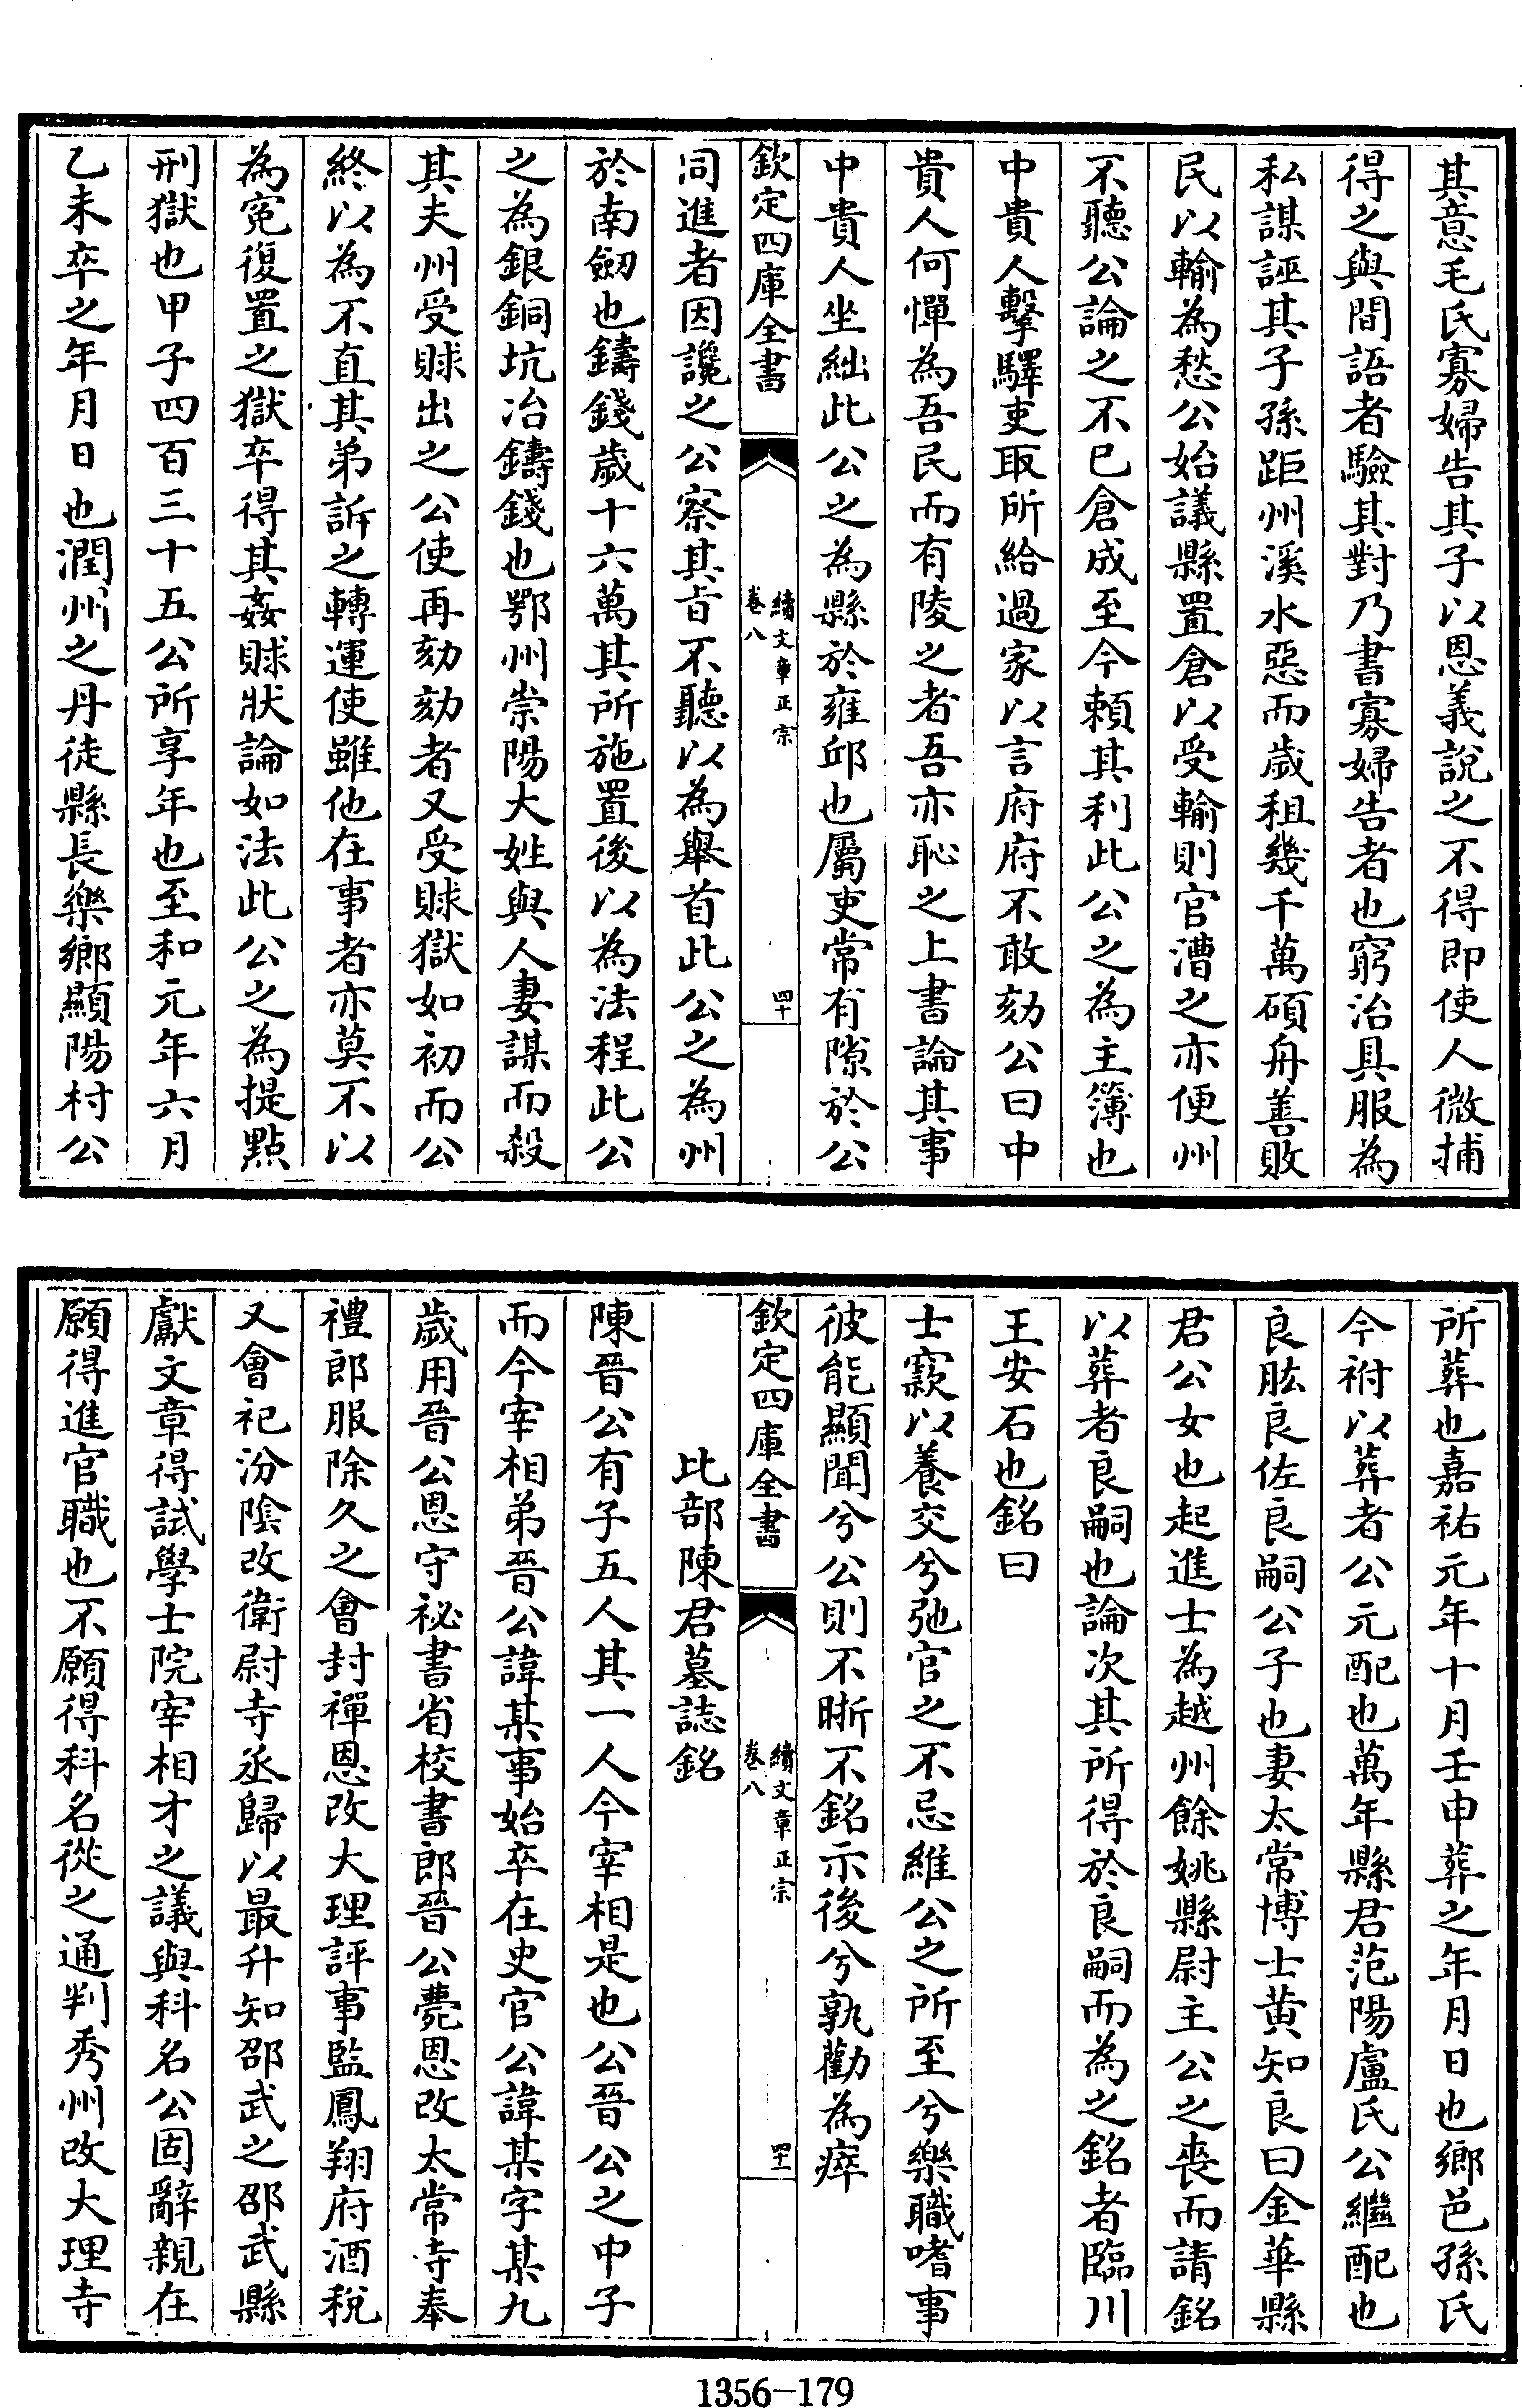 其意毛氏寡婦告其子以恩義說之不得即使人微捕
得之與間語者驗其對乃書寡婦告者也窮治具服為
私謀誣其子孫距州溪水惡而歲租幾千萬碩舟善敗
民以輸為愁公始議縣置倉以受輸則官漕之亦便州
不聽公論之不已倉成至今賴其利此公之為主簿也
中貴人擊驛吏取所給過家以言府府不敢劾公曰中
貴人何憚為吾民而有陵之者吾亦恥之上書論其事
中貴人坐絀此公之為縣於雍邱也屬吏常有隙於公
欽定四庫全書
續文章正宗
卷八
四十
同進者因讒之公察其㫖不聽以為舉首此公之為州
於南劔也鑄錢歲十六萬其所施置後以為法程此公
之為銀銅坑冶鑄錢也鄂州崇陽大姓與人妻謀而殺
其夫州受賕出之公使再劾劾者又受賕獄如初而公
終以為不直其弟訴之轉運使雖他在事者亦莫不以
為寃復置之獄卒得其姦賕狀論如法此公之為提點
刑獄也甲子四百三十五公所享年也至和元年六月
乙未卒之年月日也潤州之丹徒縣長樂鄉顯陽村公
所葬也嘉祐元年十月壬申葬之年月日也鄉邑孫氏
今祔以葬者公元配也萬年縣君范陽盧氏公繼配也
良肱良佐良嗣公子也妻太常博士黄知良曰金華縣
君公女也起進士為越州餘姚縣尉主公之喪而請銘
以葬者良嗣也論次其所得於良嗣而為之銘者臨川
王安石也銘曰
士窾以養交兮弛官之不忌維公之所至兮樂職嗜事
彼能顯聞兮公則不晣不銘示後兮孰勸為瘁
欽定四庫全書
續文章正宗
卷八
四十一
比部陳君墓誌銘
陳晉公有子五人其一人今宰相是也公晉公之中子
而今宰相弟晉公諱某事始卒在史官公諱某字某九
歲用晉公恩守祕書省校書郎晉公薨恩改太常寺奉
禮郎服除久之會封禪恩改大理評事監鳳翔府酒税
又會祀汾陰改衛尉寺丞歸以最升知邵武之邵武縣
獻文章得試學士院宰相才之議與科名公固辭親在
願得進官職也不願得科名從之通判秀州改大理寺
1356—179